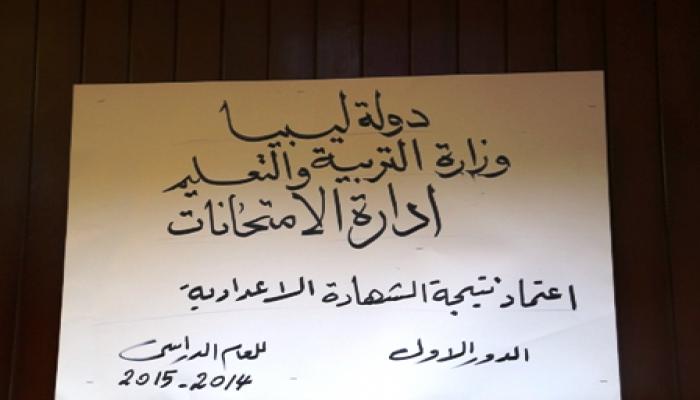 دولة ليبيا
وزارة التربية والتعليم
ادارة الامتحانات
اعتماد نتيجة الشهادة الاعدادية
الدور الاول
للعام الدراسى
2015-2014